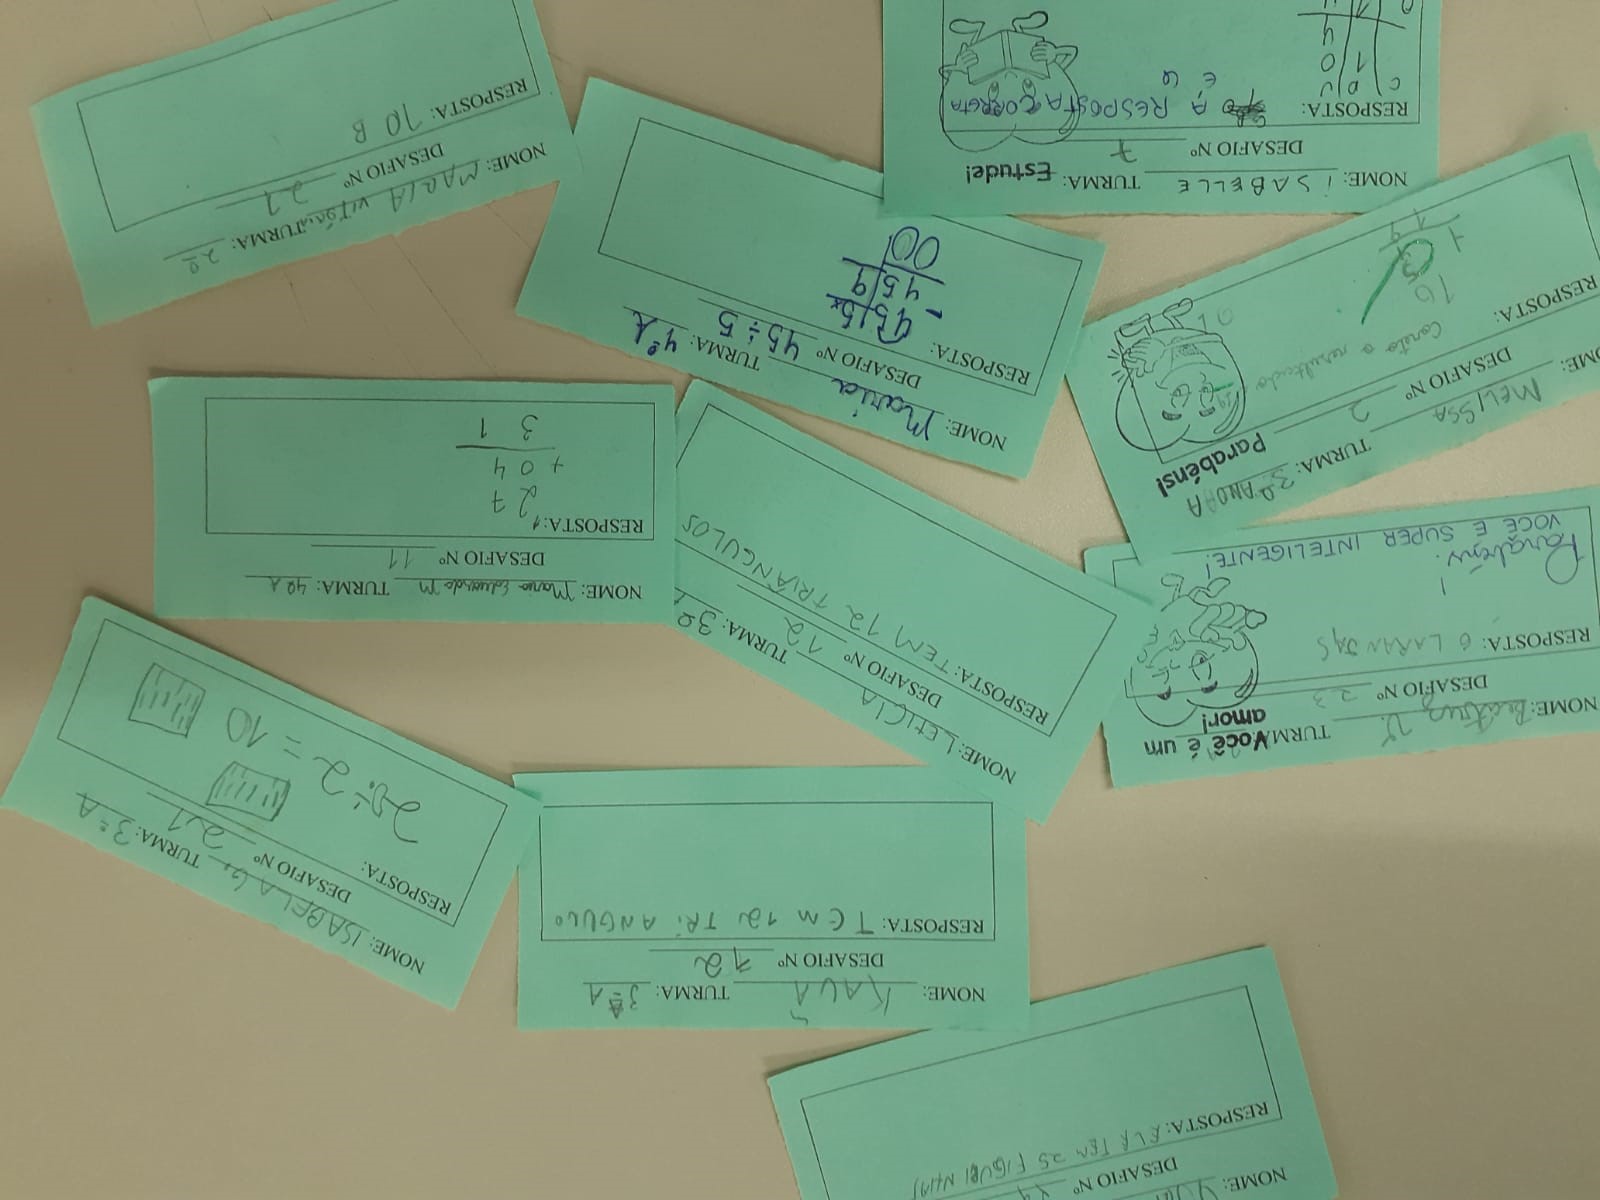 NOME: ISABELLE TURMA: Estude!
DESAFIO Nº 7
RESPOSTA: A RESPOSTA CORRETA
É 6
C D U
NOME: MARIA VITÓRIA TURMA: 2º
DESAFIO Nº 21
RESPOSTA: 10 B
NOME: Maria TURMA: 4º A
DESAFIO Nº 45 ÷ 5
RESPOSTA: 45 5
- 45 9
00
NOME: MELISSA TURMA: 3º ANO A
DESAFIO Nº 2 Parabéns!
RESPOSTA: Conta o resultado
16
+
19
NOME: TURMA: Você é um
amor!
DESAFIO Nº 23
RESPOSTA: 6 LARANJAS
Parabéns!
VOCÊ É SUPER INTELIGENTE!
NOME: Maria Eduarda M TURMA: 4º A
DESAFIO Nº 11
RESPOSTA:
27
+ 04
31
NOME: LETICIA TURMA: 3º
DESAFIO Nº 12
RESPOSTA: TEM 12 TRIÂNGULOS
NOME: ISABELA G. TURMA: 3º A
DESAFIO Nº 21
RESPOSTA:
20 ÷ 2 = 10
NOME: KAUÃ TURMA: 3º A
DESAFIO Nº 12
RESPOSTA: TEM 12 TRIANGULO
NOME:
DESAFIO Nº
RESPOSTA: ELA TEM 25 FIGURINHAS